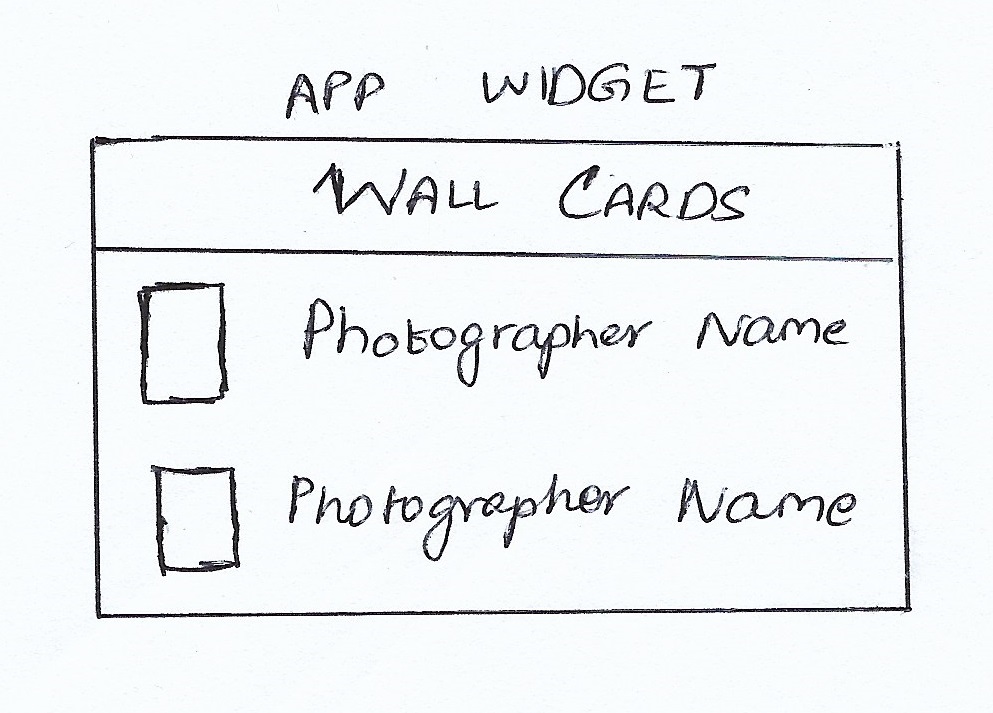 APP WIDGET
WALL CARDS
Photographer Name
Photographer Name